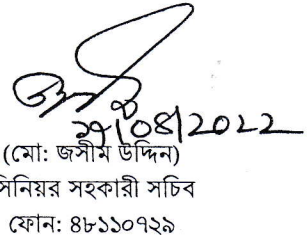 /08/2022
(মো: জসীম উদ্দিন)
সিনিয়র সহকারী সচিব
ফোন: ৪৮১১০৭২৯